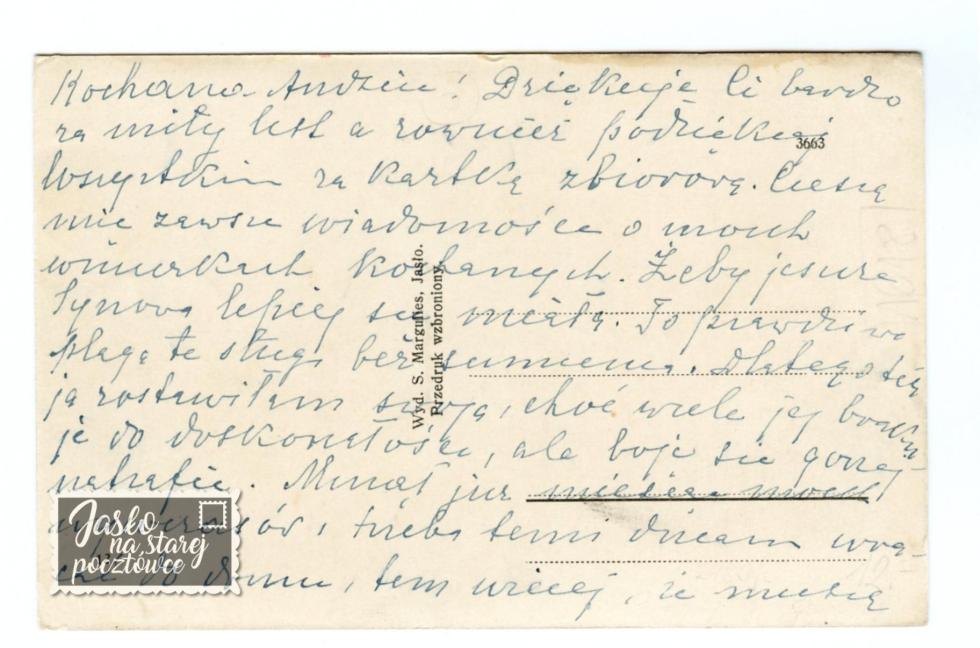 Kochana Andziu! Dziękuję Ci bardzo
za miły list a również podziękuj
3663
Wszystkim za kartkę zbiorową. Cieszą
mię zawsze wiadomości o moich
wnuczkach kochanych. Żeby jeszcze
Synowa lepiej się miała. To prawdziwa
plaga te sługi bez sumienia. Dlatego też
ja zostawiłam swoją, choć wiele jej braku
je do doskonałości, ale boję się gorzej
natrafić. Minął już miesiąc moich
i trzeba temi dniami wra-
do domu, tem więcej, że muszę
Wyd. S. Margulies, Jasło.
Przedruk wzbroniony.
Jasło
na starej
pocztówce